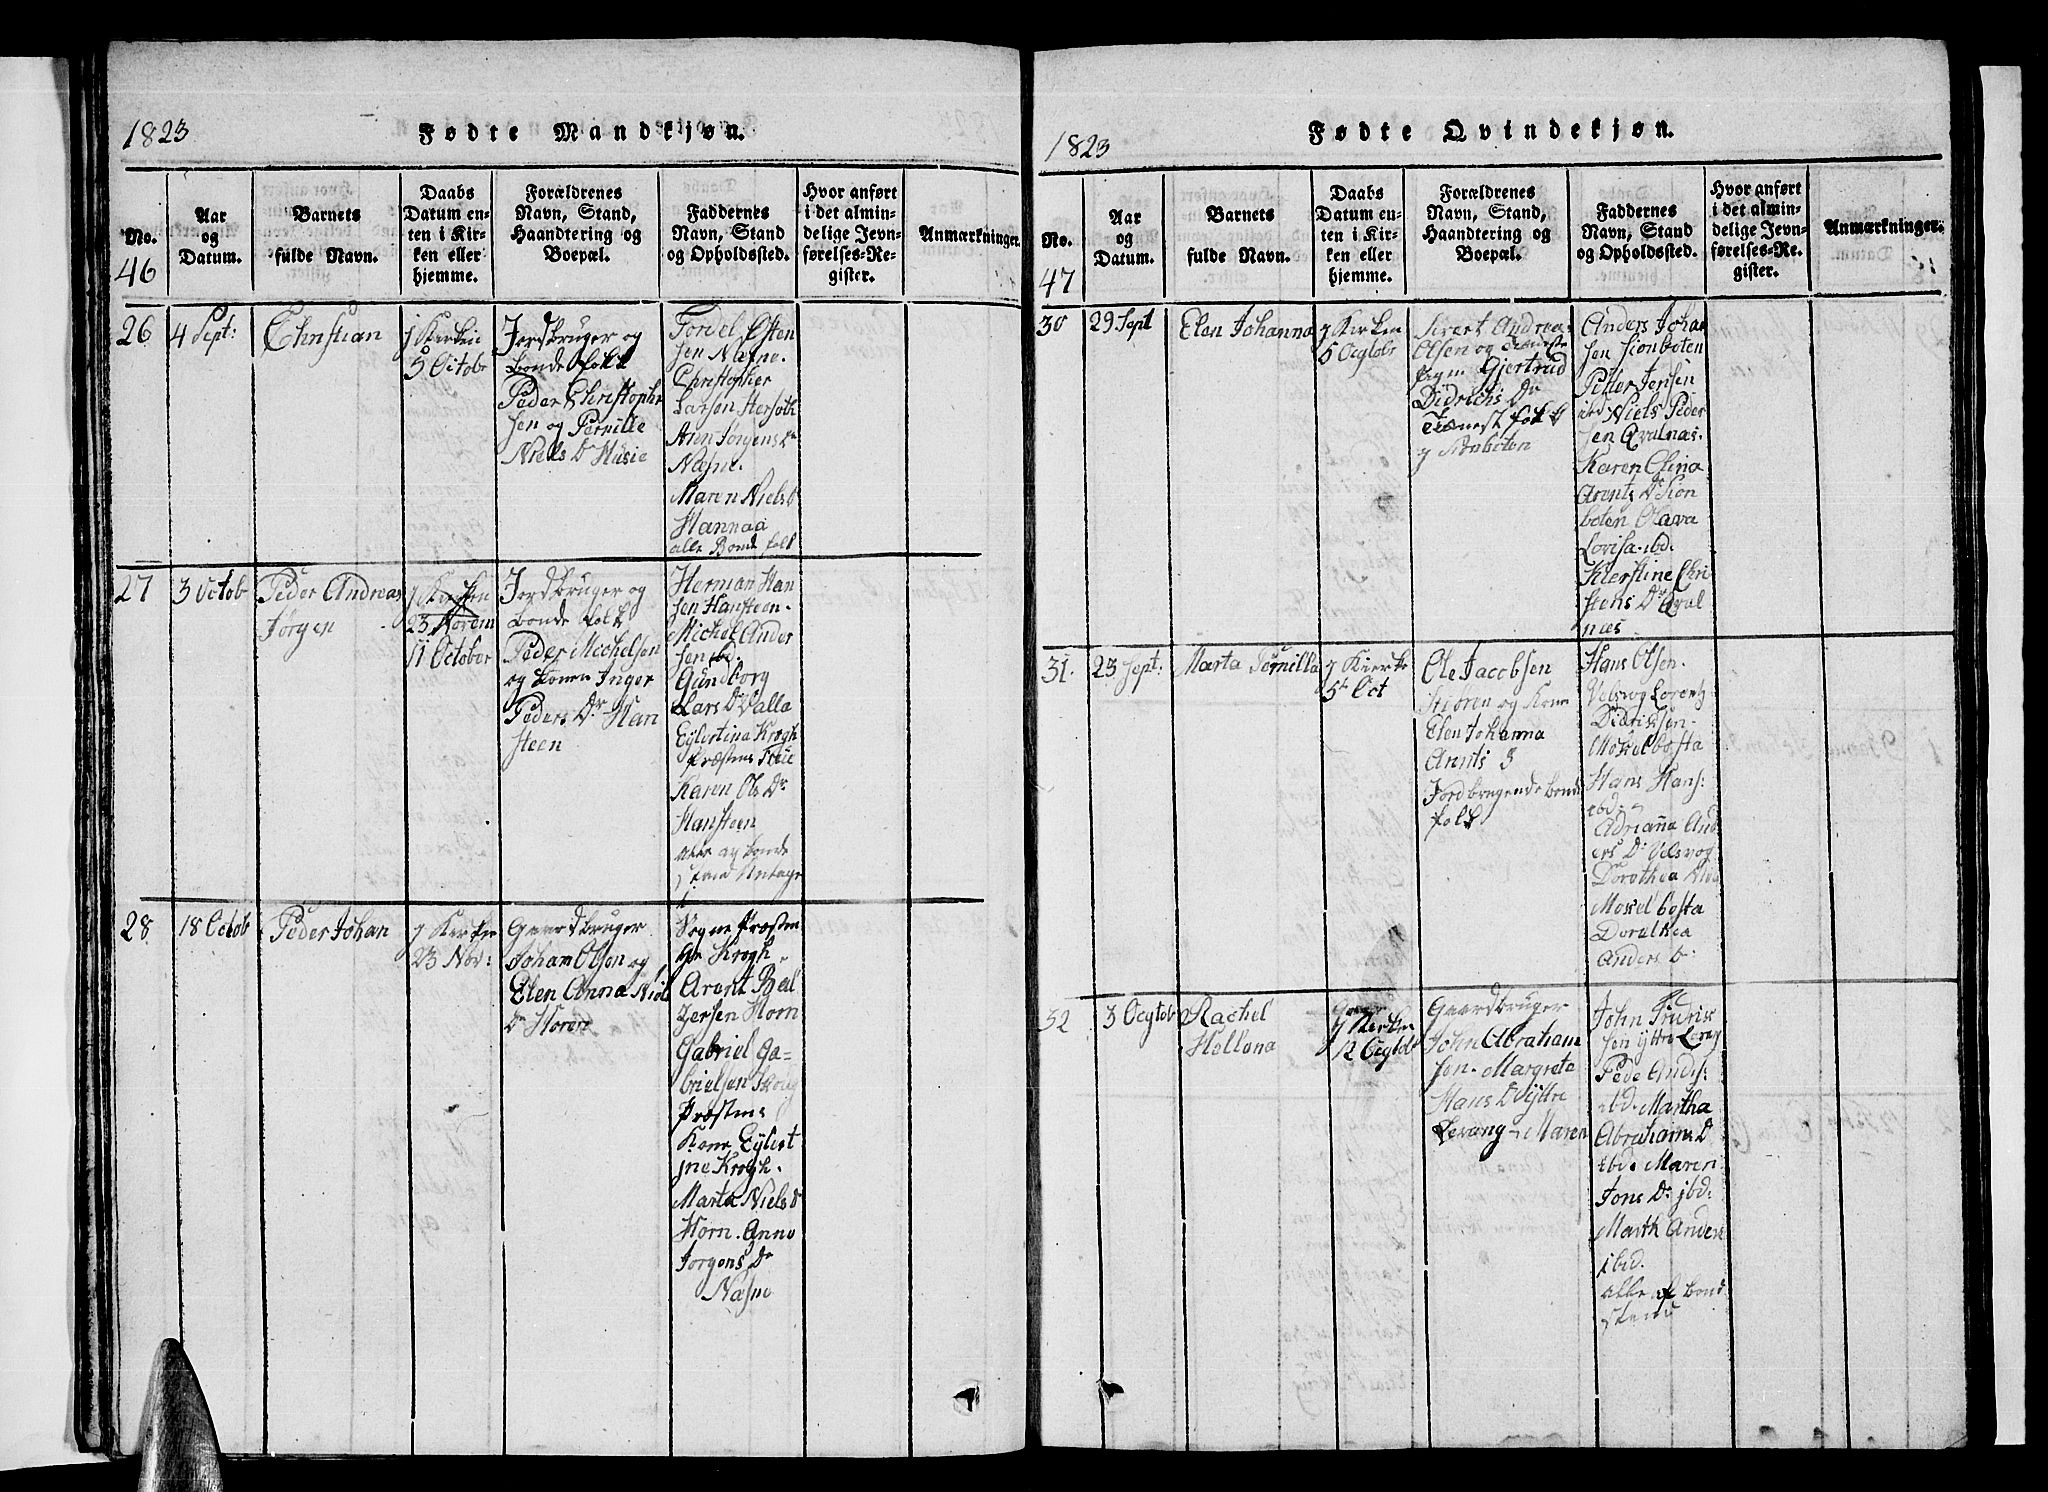 1823
Fødte Mandkjøn.
No.
46
Aar
og
Datum.
Barnets
fulde Navn.
Daabs
Datum en-
ten i Kir-
ken eller
hjemme.
Forældrenes
Navn, Stand,
Haandtering og
Boepæl.
Faddernes
Navn, Stand
og Opholdssted.
Hvor anført
i det almin-
delige Jevn-
førelses-Re-
gister.
Anmærkninger.
26
4 Sept:
Christian
j Kirken
5 Octobr
Jordbruger og
bonde folk
Peder Christopher
sen og Pernille
Niels Dr Husie
Tordel Osten
sen Næsne.
Christopher
Larsen
Jørgens Dr
Næsne.
Maren Niels D
Hannaa
alle Bonde folk
27
3 Octob
Peder Andreas
Jørgen
j Kirken
23 Novem
11 October
Jordbruger og
bonde folk
Peder Michelsen
og konen Inger
Peders Dr Han
steen
Herman Han
sen Hansteen.
Michel Ander
sen ibd.
Gundborg
Lars Dr Valla
Eylertina Krogh
Præstens Frue
Karen Ols Dr
Hansteen
alle af bonde
28
18 Octob
Peder Johan
j Kirken
23 Nov:
Gaardbruger
Johan Olsen og
Elen Anna Niels
Dr Horen
Sogne Præsten
Hr Krogh.
Arent Bal
zersen Horn
Gabriel Ga-
brielsen
Præstens
Kone Eylert
ine Krogh.
Marta Niels D
Horn. Anne
Jorgens Dr
Næsne
1823
Fødte Qvindekjøn.
No.
47
Aar
og
Datum.
Barnets
fulde Navn.
Daabs
Datum en-
ten i Kir-
ken eller
hjemme.
Forældrenes
Navn, Stand,
Haandtering og
Boepæl.
Faddernes
Navn, Stand
og Opholdssted.
Hvor anført
i det almin-
delige Jevn-
førelses-Re-
gister.
Anmærkninger.
30
29 Sept
Elen Johanna
j Kirken
5 Octobr
Sivert Andreas
Olsen og Tieneste
Gjertrud
Didrichs Dr
Tienest folk
j Sionboten
Anders Johan
sen Sionboten
Peder Jensen
ibd. Niels Peder
sen Qvalnæs.
Karen Elina
Arents Dr Sion
boten Olava
Lovisa. ibd.
Kierstine Chri
stens Dr Qval
næs
31.
23 Sept:
Marta Pernilla
j Kirke
5t Oct
Ole Jacobsen
og Kone
Elen Johanna
Arnts D
Jordbrugende bonde
folk
Hans Olsen.
Velsvog Lorentz
Didrissen.
Moxelbosta
Hans Hans:
ibd.
Adrianna And
ers Dr Velsvog
Dorothea
Moxelbosta
Dorothea
Anders D.
32
3 Octob
Rachel
Hellena
j Kierken
12 Octobr
Gaardbruger
John Abraham
sen. Margrete
Hans D Yttre
Levang Maren
John Fridrix
sen Yttre Levang
Peder Anders:
ibd. Martha
Abrahams D
ibd. Maren
Jons Dr. ibd.
Marth Anders
ibd.
alle af bond
stand